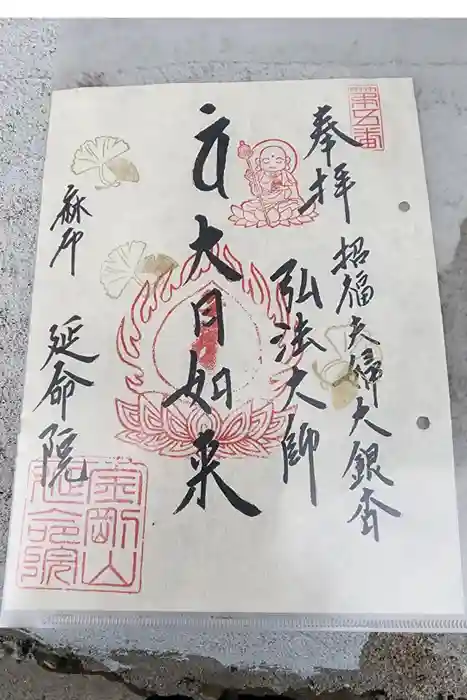 第五番
奉拝
招福夫婦大銀杏
弘法大師
大日如来
麻布
延命院
金剛山
延命院